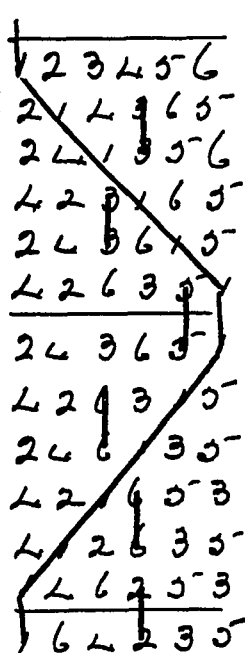 1 2 3 4 5 6
2 1 4 3 6 5
2 4 1 3 5 6
4 2 3 1 6 5
2 4 3 6 1 5
4 2 6 3 5 1
2 4 3 6 5 1
4 2 6 3 1 5
2 4 6 1 3 5
4 2 1 6 5 3
4 1 2 6 3 5
1 4 6 2 5 3
1 6 4 2 3 5